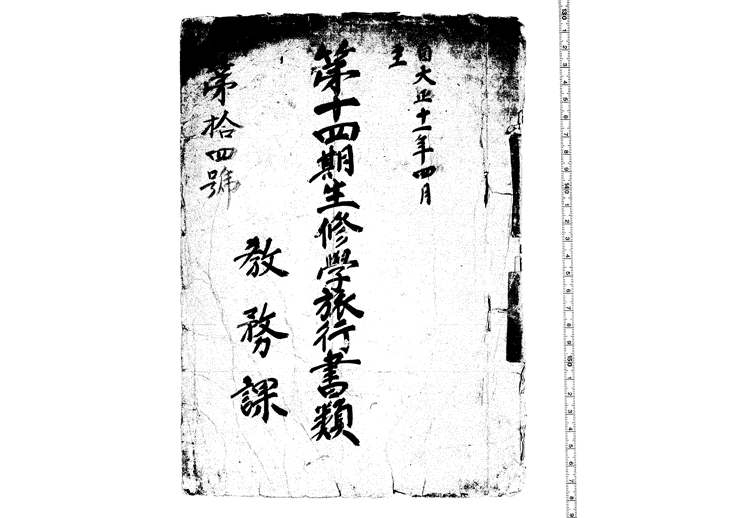 自大正十一年四月
至
第十四期生修學旅行書類
教務課
第拾四號